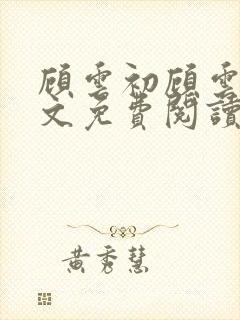 顾雲初顾雲
文免費閱讀
黃秀慧